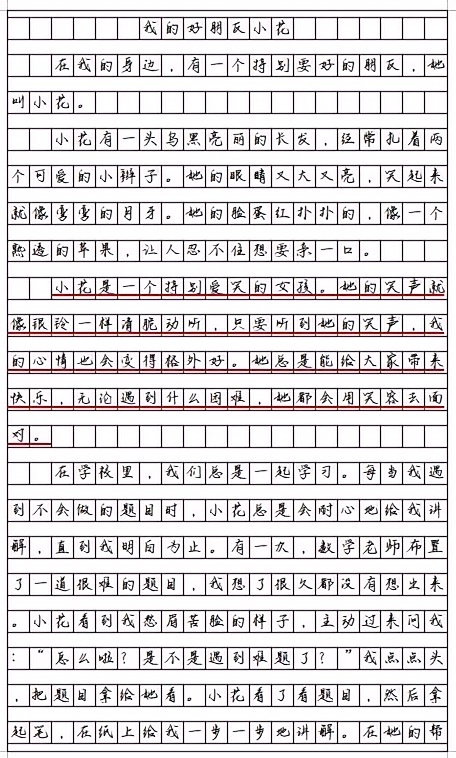 我的好朋友小花
在我的身边，有一个特别要好的朋友，她
叫小花。
小花有一头乌黑亮丽的长发，经常扎着两
个可爱的小辫子。她的眼睛又大又亮，笑起来
就像弯弯的月牙。她的脸蛋红扑扑的，像一个
熟透的苹果，让人忍不住想要亲一口。
小花是一个特别爱笑的女孩。她的笑声就
像银铃一样清脆动听，只要听到她的笑声，我
的心情也会变得格外好。她总是能给大家带来
快乐，无论遇到什么困难，她都会用笑容去面
对。
在学校里，我们总是一起学习。每当我遇
到不会做的题目时，小花总是会耐心地给我讲
解，直到我明白为止。有一次，数学老师布置
了一道很难的题目，我想了很久都没有想出来
。小花看到我愁眉苦脸的样子，主动过来问我
：“怎么啦？是不是遇到难题了？”我点点头
，把题目拿给她看。小花看了看题目，然后拿
起笔，在纸上给我一步一步地讲解。在她的帮